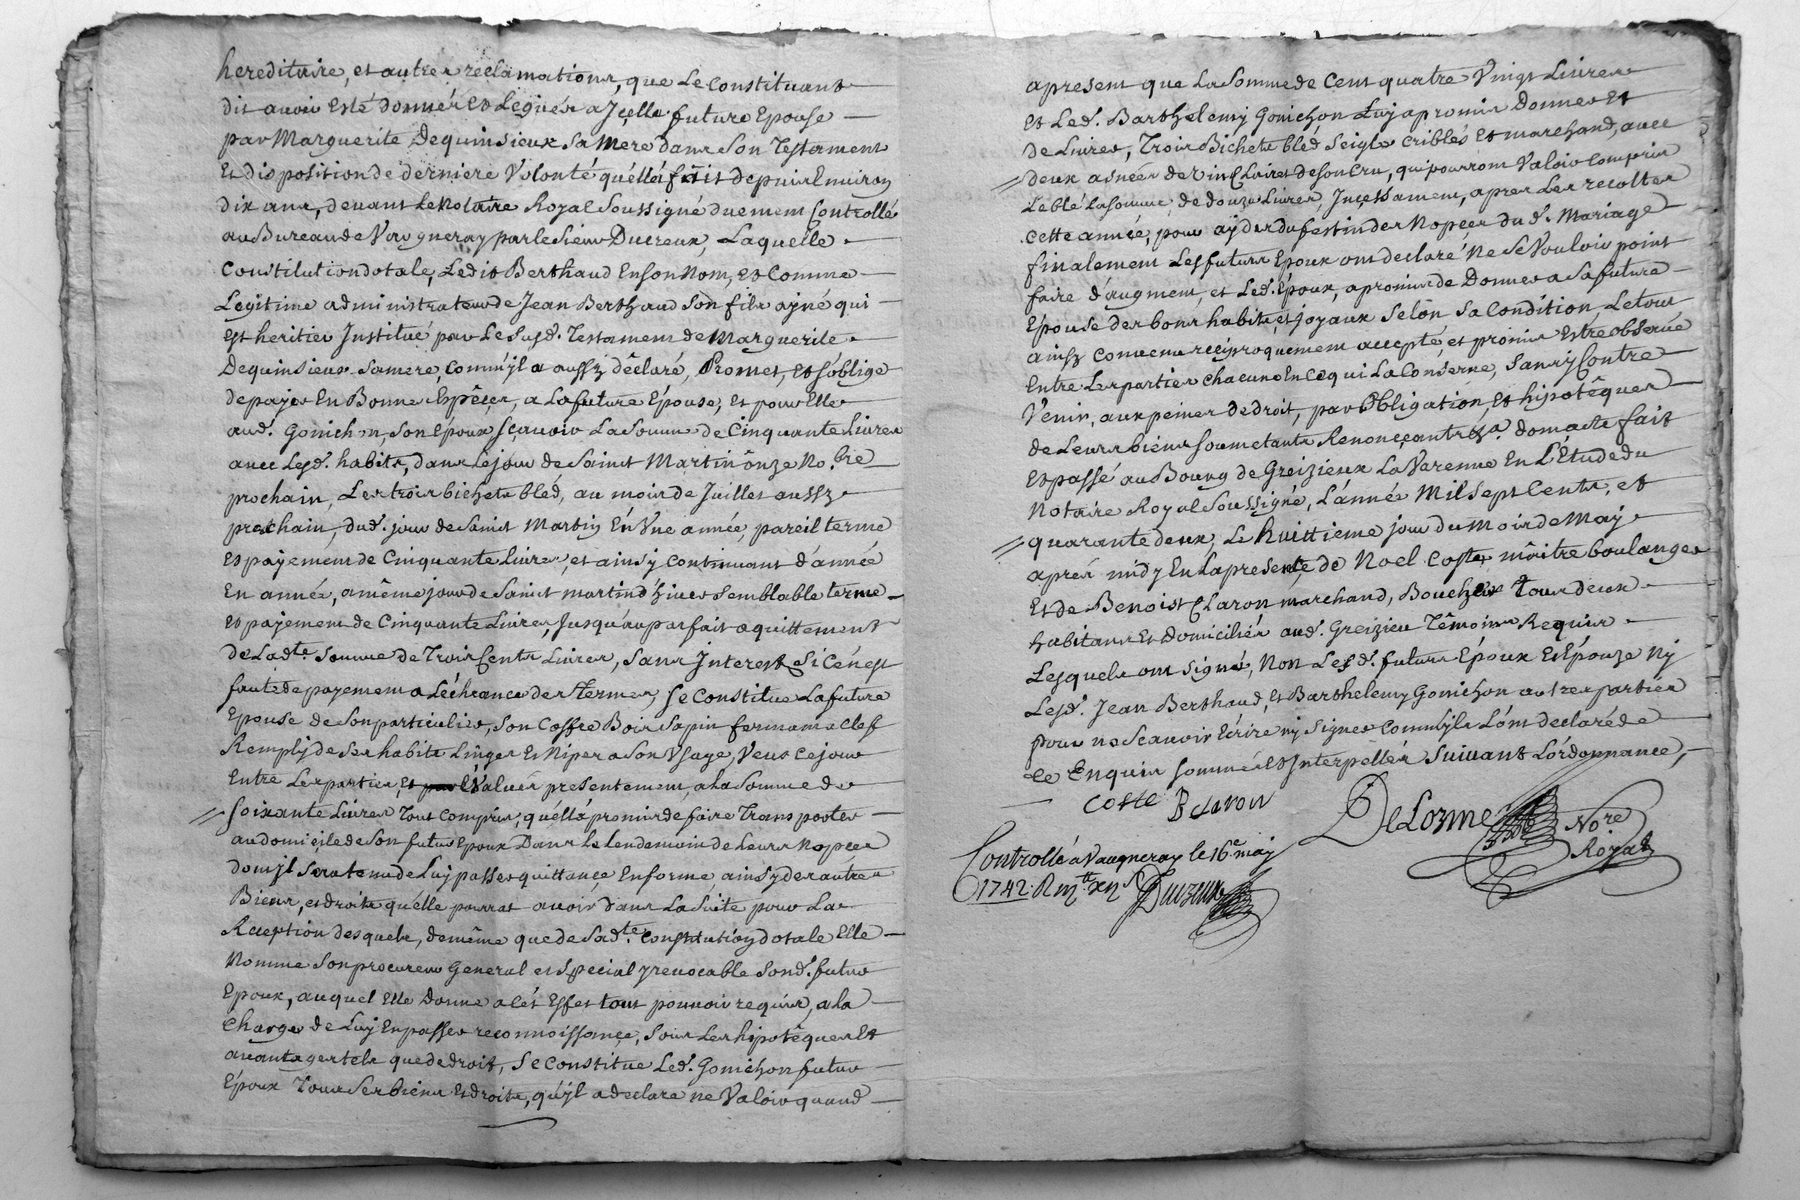 hereditaire, et autres reclamations, que Le Constituant
dit avoir esté donnés et Legués a Jcelle future Epouse
par Marguerite Dequinsieux Sa Mere dans Son Testament
Et disposition de derniere Volonté qu'elle fait depuis Environ
dix ans, devant Le Notaire Royal Soussigné duement Controllé
au Bureau de Vaugneray par le Sieur Ducreux, Laquelle
Constitution dotale, Ledit Berthaud En son Nom, et Comme
Legitime administrateur de Jean Berthaud Son fils ayné qui
Est heritier Institué par Le Susd. Testament de Marguerite
Dequinsieux Sa mere, Comm'jl a aussy dêclaré, Promet, et s'oblige
de payer En Bonne Espêces, a La future Epouse, et pour Elle
aud. Gonichon, Son Epoux sçavoir La Somme de Cinquante Livres
avec Lesd. habits, dans Le jour de Saint Martin ônze No.bre
prochain, Les trois bichets bléd, au mois de Juillet aussy
prochain, dud. jour de Saint Martin En Vne année, pareil terme
et payement de Cinquante Livres, et ainsy Continuant d'année
En année, a même jour de Saint Martin d'hiver Semblable terme
et payement de Cinquante Livres, Jusqu'au parfait aquittement
de Lad.te Somme de Trois Cents Livres, Sans Interest Si Cen'est
faute de payement a L'échéance des Termes, Se Constitue La future
Epouse de Son particulier, Son Coffre Bois Sapin fermant a Clef
Remply de Ses habits Linges Et Nipes a Son Vsage, Veus Ce jour
Entre Les parties, et Evalués presentement, a La Somme de
// Soixante Livres Tout Compris, qu'ella promis de faire Transporter
au domicile de Son futur Epoux Dans Le Lendemain de Leurs Nopces
dont jl Sera tenu de Luy passer quittance En forme, ainsy des autres
Biens, et droits qu'elle pourrat avoir dans La Suite pour La
Reception desquels, de même que de Sad.te Constitution dotale Elle
Nomme Son procureur General et Special jrevocable Sond. futur
Epoux, auquel Elle Donne a cét Effet tout pouvoir requis, a la
Charge de Luy En passer reconnoissance, Sous Les hipotêques Et
avantages tels que de droit, Se Constitue Led. Gonichon futur
Epoux Tous Ses biens Et droits, qu'jl a declare ne Valoir quand
apresent que La Somme de Cent quatre Vingt Livres
Et Led. Barthelemy Gonichon Luy a promis Donner Et
de Livrer, Trois Bichets bléd Seigle criblés Et marchand, avec
// deux asnées de Vin Clairet de Son Cru, qui pourront Valoir Compris
Le blé La Somme de douze Livres, Incessament, apres Les recoltes
Cette année, pour ayder du festin des Nopces dud. Mariage
finalement Les futurs Epoux ont declaré Ne Se Vouloir point
faire d'augment, et Led. Epoux, a promis de Donner a Sa future
Epouse des bons habits, et joyaux Selon Sa Condition, Le tout
ainsy Convenu reciproquement accepté, et promis Estre observé
Entre Les parties Chacune En Ce qui La Conserne, Sans y Contre
Venir, aux peines de droit, par Obligation, Et hipotêques
de Leurs biens Soumetants Renonçants &a. dont acte fait
Et passé au Bourg de Greizieux La Varenne En L'Etude du
Notaire Royal Soussigné, L'année Mil Sept Cents, et
// quarante deux, Le huittieme jour du Mois de May
après midy En La presence de Noel Coste maître boulanger
Et de Benoist Claron marchand, Boucher tous deux
habitans Et domiciliés aud. Greizieu Têmoins Requis
Lesquels ont Signé, Non Lesd. futurs Epoux Et Epouze Ny
Lesd. Jean Berthaud, et Barthelemy Gonichon autres parties
pour ne Scavoir Ecrire ny Signer Comm'jls L'ont declaré de
Ce Enquis Sommés Et Interpellés Suivant L'ordonnance,
Coste B Claron
DeLorme No.re Royal
Controllé a Vaugneray le 16.e may
1742. Ducreux